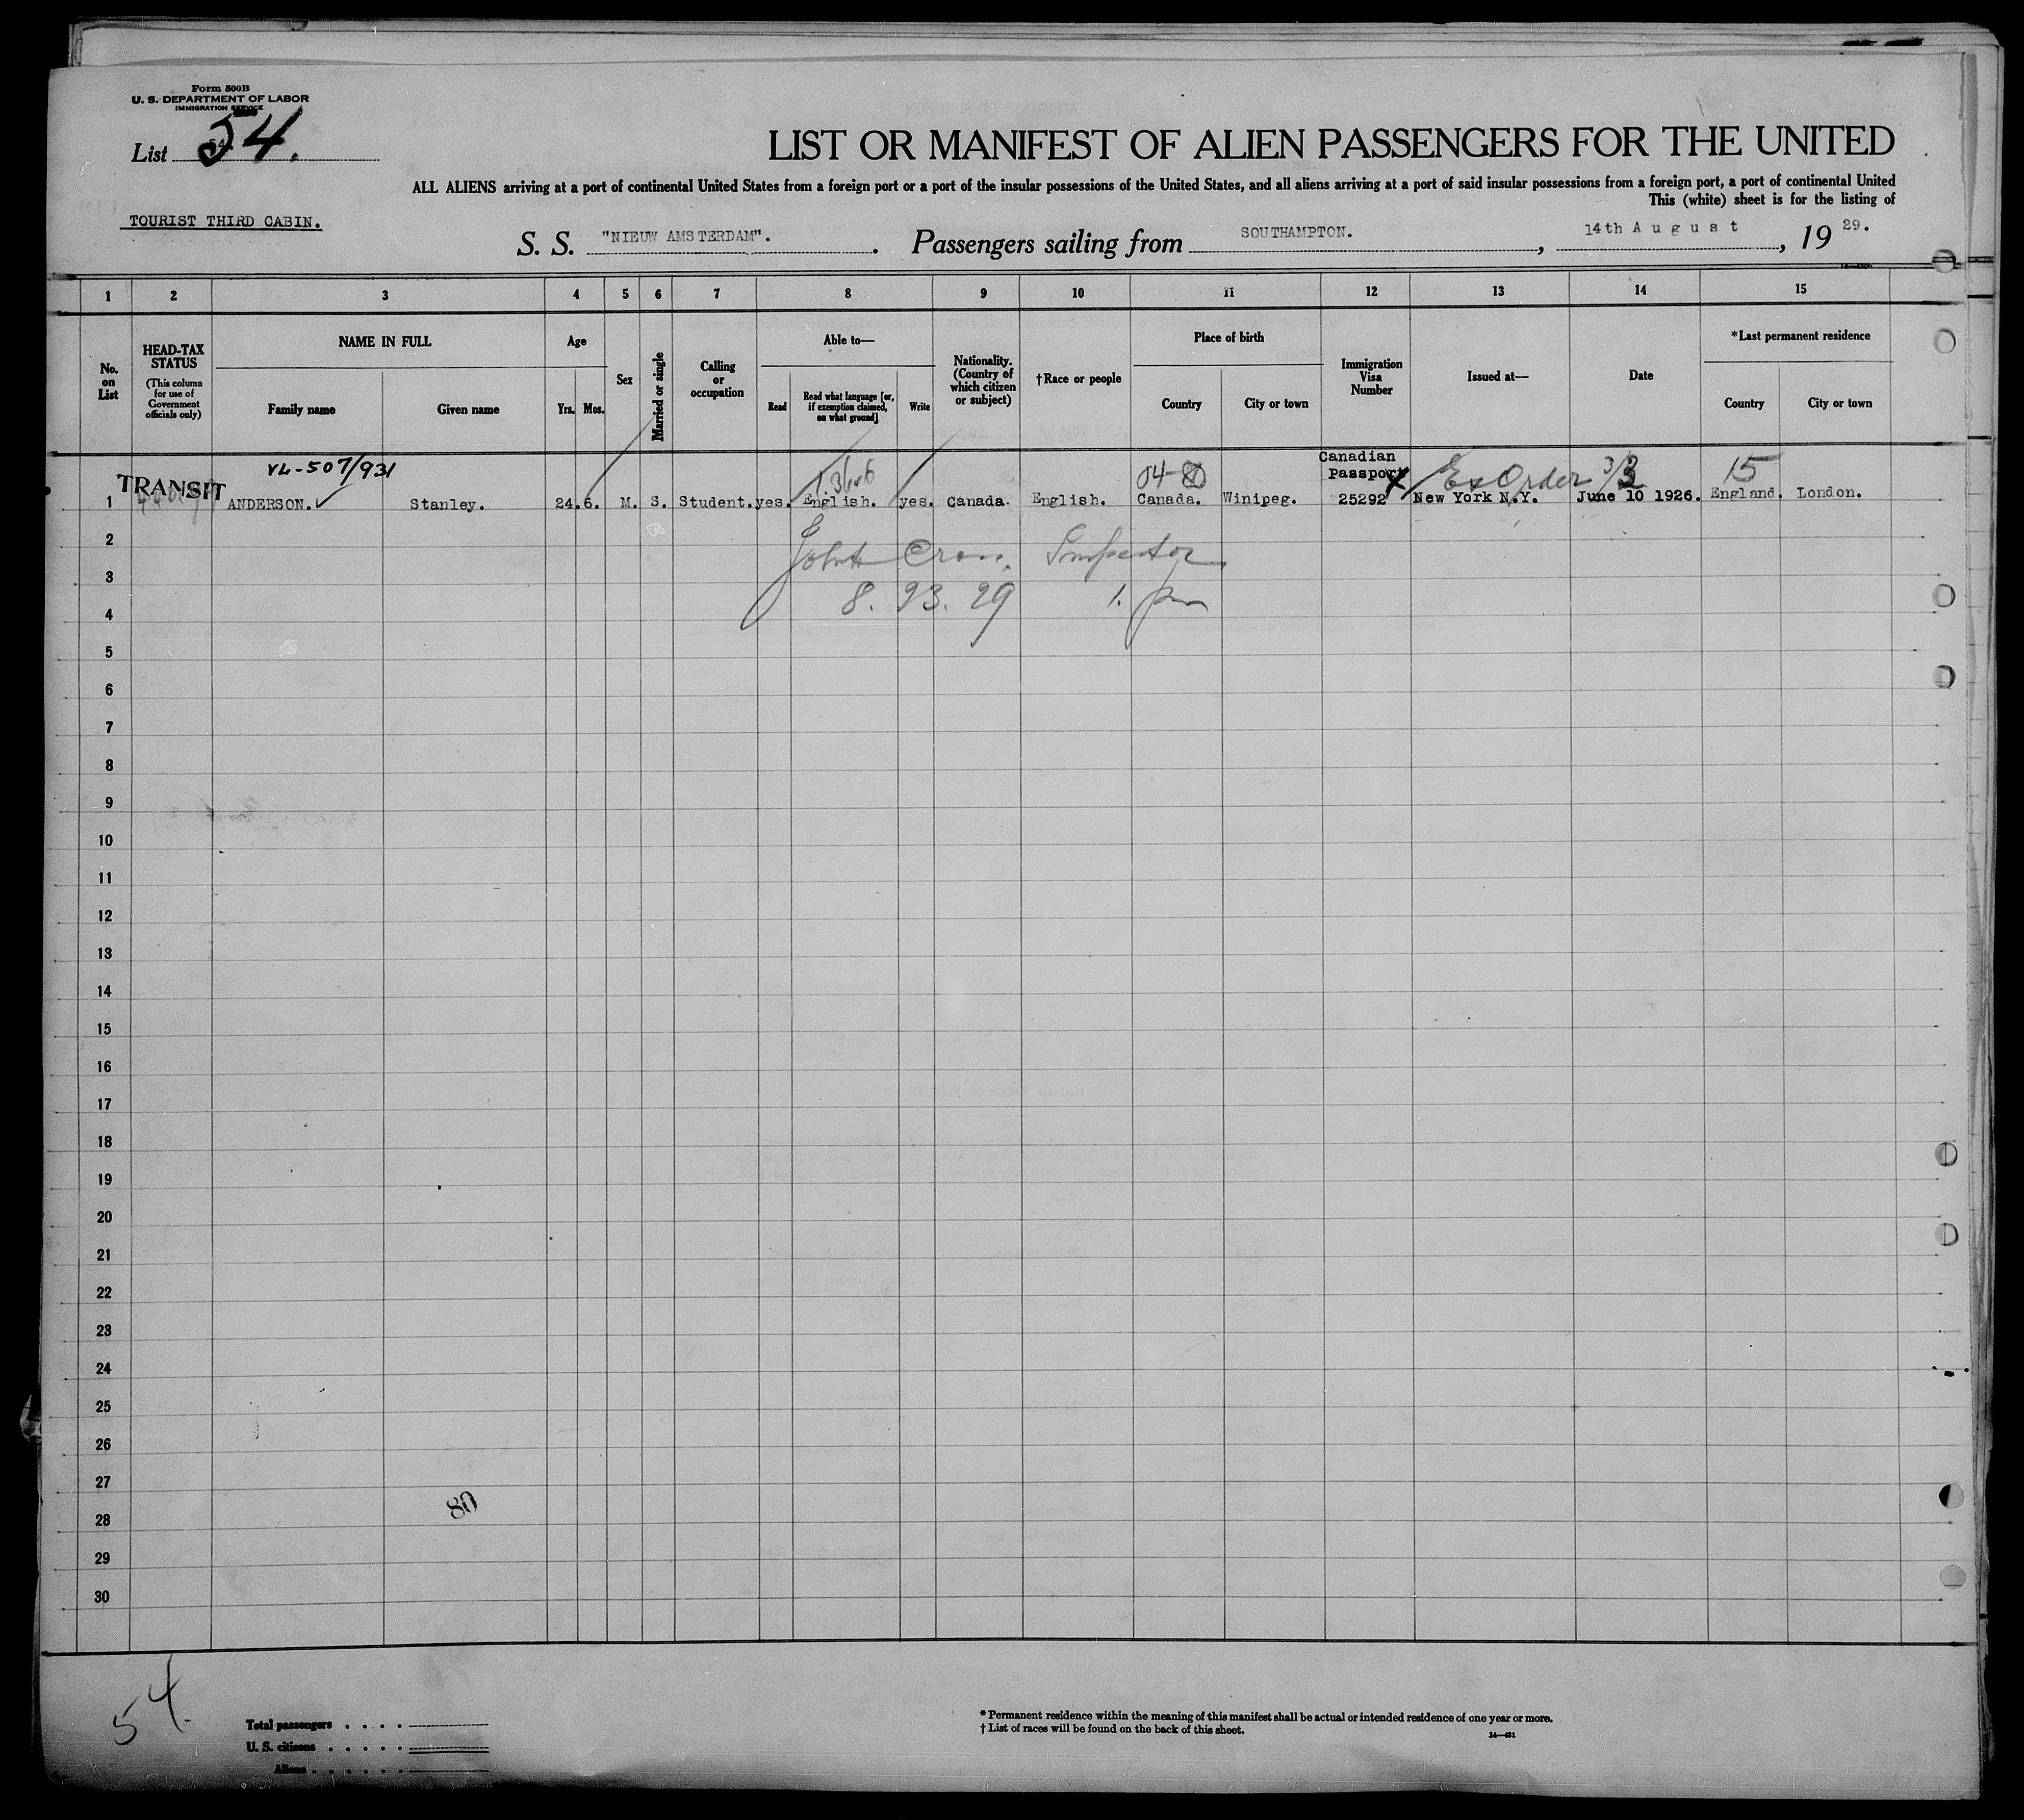 Form 500B
U. S. DEPARTMENT OF LABOR
IMMIGRATION SERVICE
List 54.
LIST OR MANIFEST OF ALIEN PASSENGERS FOR THE UNITED
ALL ALIENS arriving at a port of continental United States from a foreign port or a port of the insular possessions of the United States, and all aliens arriving at a port of said insular possessions from a foreign port, a port of continental United
This (white) sheet is for the listing of
TOURIST THIRD CABIN.
S. S. "NIEUW AMSTERDAM". Passengers sailing from SOUTHAMPTON. , 14th August , 19 29.
1 2 3 4 5 6 7 8 9 10 11 12 13 14 15
No. on List
HEAD-TAX STATUS (This column for use of Government officials only)
NAME IN FULL
Family name Given name
Age
Yrs. Mos.
Sex
Married or single
Calling or occupation
Able to—
Read
Read what language [or, if exemption claimed, on what ground]
Write
Nationality. (Country of which citizen or subject)
†Race or people
Place of birth
Country City or town
Immigration Visa Number
Issued at—
Date
*Last permanent residence
Country City or town
VL-507/931
04-80 Canadian Passport X Ex Order 15
TRANSIT
1 ANDERSON. ✓ Stanley. 24. 6. M. S. Student. yes. English. yes. Canada. English. Canada. Winipeg. 25292 New York N.Y. June 10 1926. England. London.
2
Inspector
3
8. 23. 29 1. pm
4
5
6
7
8
9
10
11
12
13
14
15
16
17
18
19
20
21
22
23
24
25
26
27
80
28
29
30
54.
Total passengers . . . .
U. S. citizens . . . . .
Aliens . . . . . .
* Permanent residence within the meaning of this manifest shall be actual or intended residence of one year or more.
† List of races will be found on the back of this sheet.